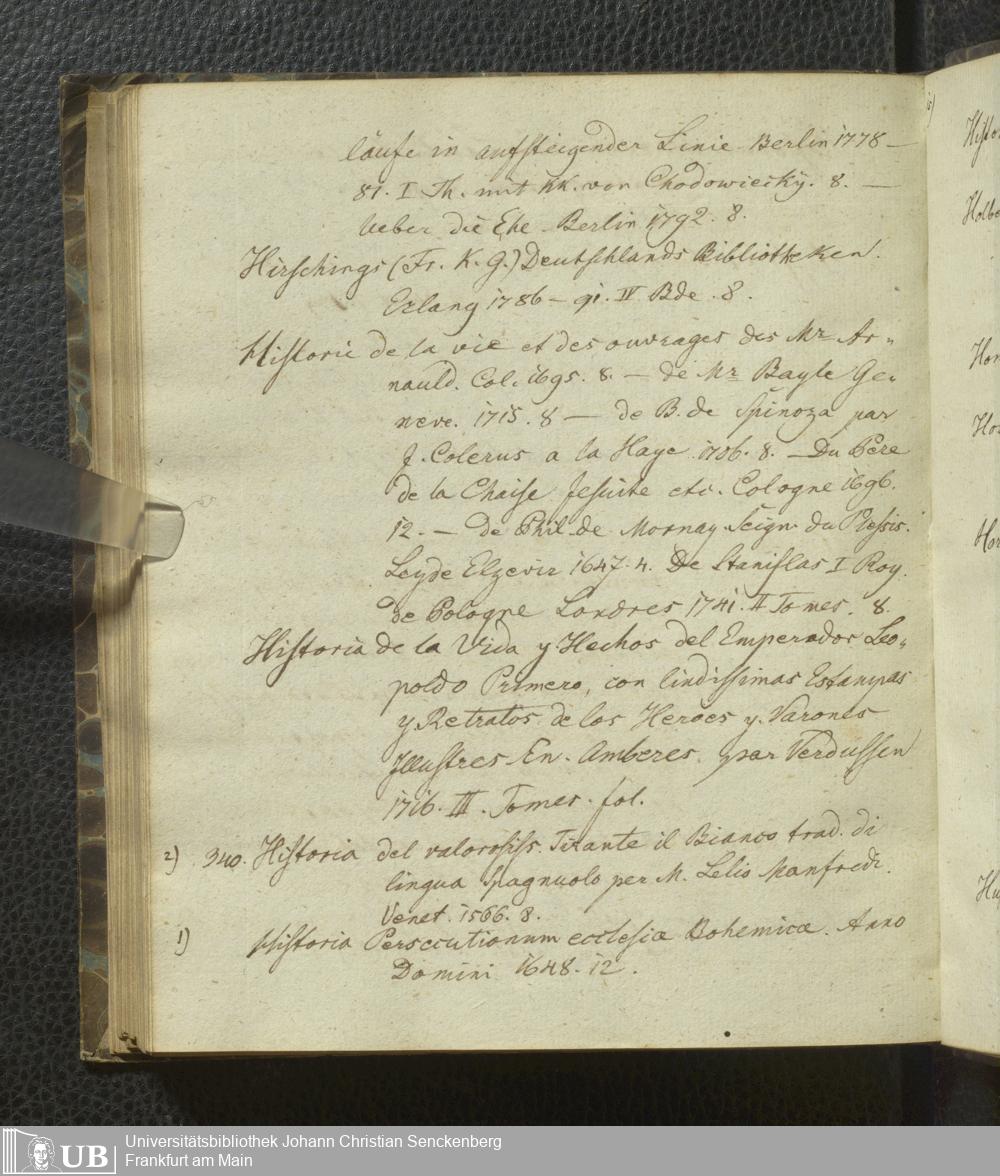 läufe in aufsteigender Linie Berlin 1778 –
81. I Th. mit KK. von Chodowiecky. 8. —
Ueber die Ehe Berlin 1792. 8.
Hirschings (Fr. K. G.) Deutschlands Bibliotheken.
Erlang 1786 – 91. IV Bde. 8.
Historie de la vie et des ouvrages des Mr. Ar-
nauld. Col. 1695. 8. — de Mr. Bayle Ge-
neve. 1715. 8 — de B. de Spinoza par
J. Colerus a la Haye 1706. 8. — Du Pere
de la Chaise Jesuite etc. Cologne 1696.
12. — De Phil. de Mornay Seign. du Plessis.
Leyde Elzevir 1647. 4. De Stanislas I Roy.
de Pologne Londres 1741. II Tomes. 8.
Historia de la Vida y Hechos del Emperador Leo-
poldo Primero, con lindissimas Estampas
y Retratos de los Heroes y Varones
Illustres En Amberes par Verdussen
1716. III. Tomes. fol.
2) 340. Historia del valorosiss. Tirante il Bianco trad. di
lingua Spagnuolo per M. Lelio Manfredi.
Venet. 1566. 8.
1) Historia Persecutionum ecclesiæ Bohemicæ. Anno
Domini 1648. 12.
UB
Universitätsbibliothek Johann Christian Senckenberg
Frankfurt am Main